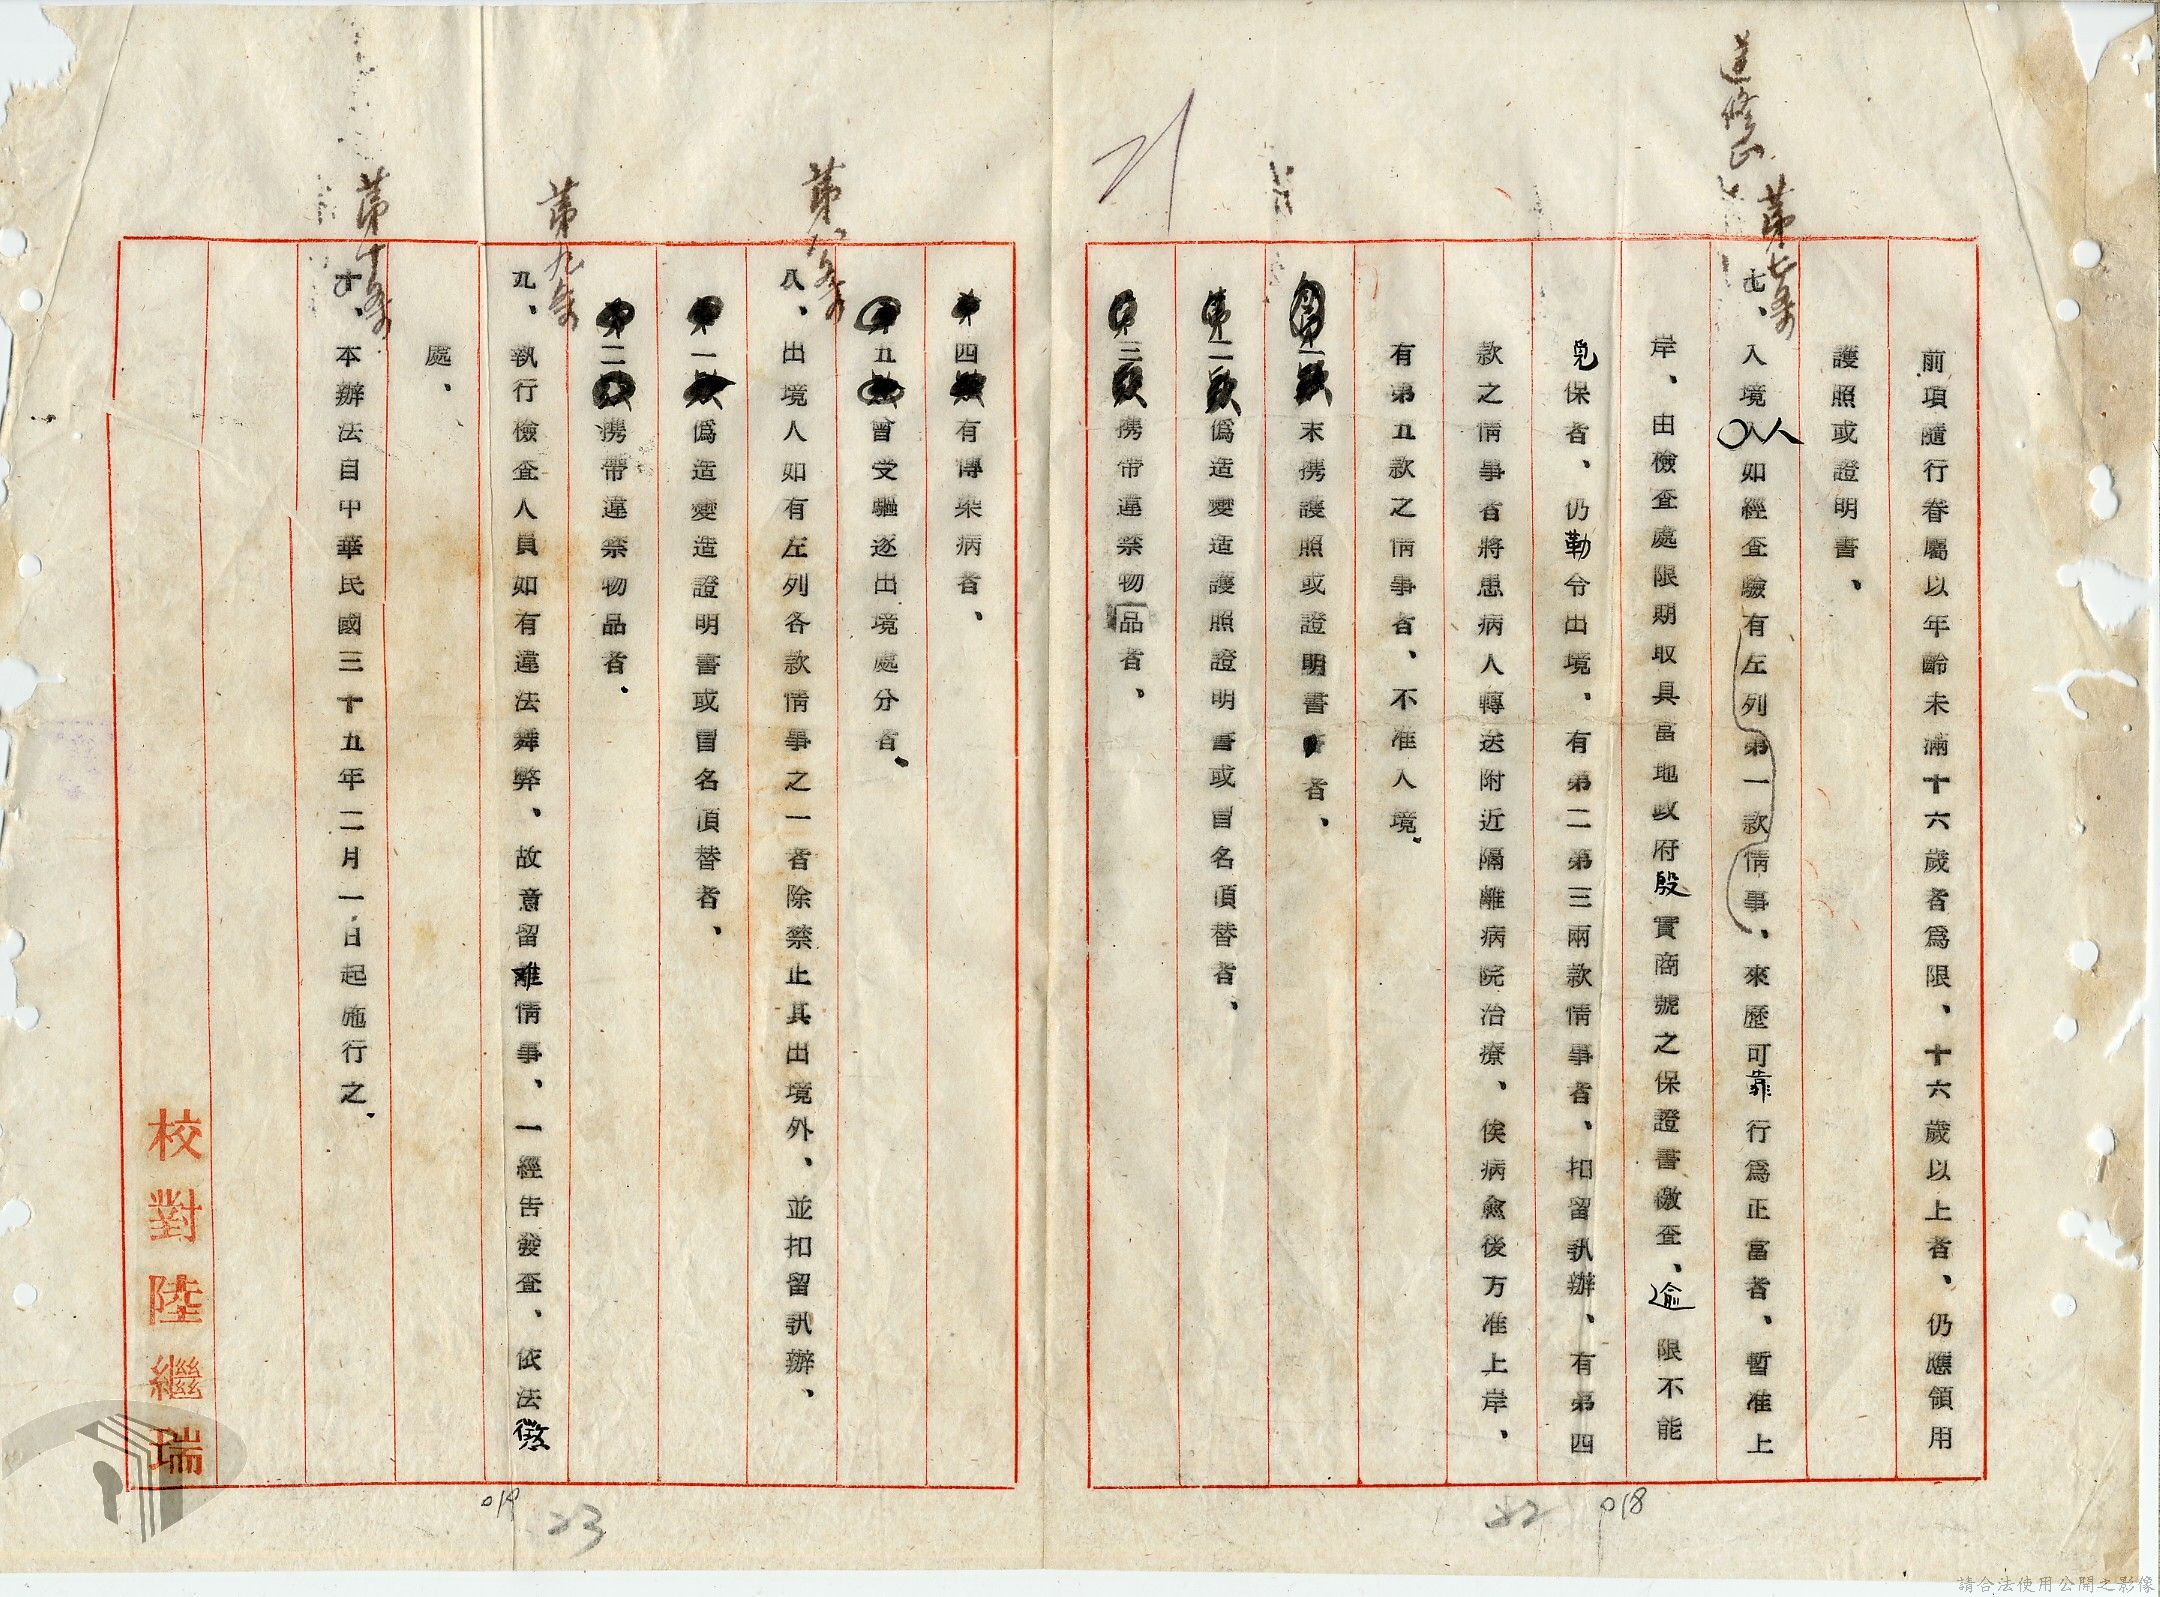 前項隨行眷屬以年齡未滿十六歲者爲限、十六歲以上者、仍應領用
護照或證明書、
第七條
七、入境人如經查驗有左列第一款情事、來歷可靠行爲正當者、暫准上
岸、由檢查處限期取具當地政府殷實商號之保證書繳查、逾限不能
覓保者、仍勒令出境、有第二第三兩款情事者、扣留訊辦、有第四
款之情事者將患病人轉送附近隔離病院治療、俟病愈後方准上岸、
有第五款之情事者、不准入境.
一末携護照或證明書者、
二僞造變造護照證明書或冒名頂替者、
三携帶違禁物品者、
四有傳染病者、
五曾受驅逐出境處分者、
第八條
八、出境人如有左列各款情事之一者除禁止其出境外、並扣留訊辦、
一僞造變造證明書或冒名頂替者、
二携帶違禁物品者.
第九條
九、執行檢查人員如有違法舞弊、故意留難情事、一經告發查、依法懲
處、
第十條
十、本辦法自中華民國三十五年二月一日起施行之.
校對陸繼瑞
21
22
018
019
23
請合法使用公開之影像